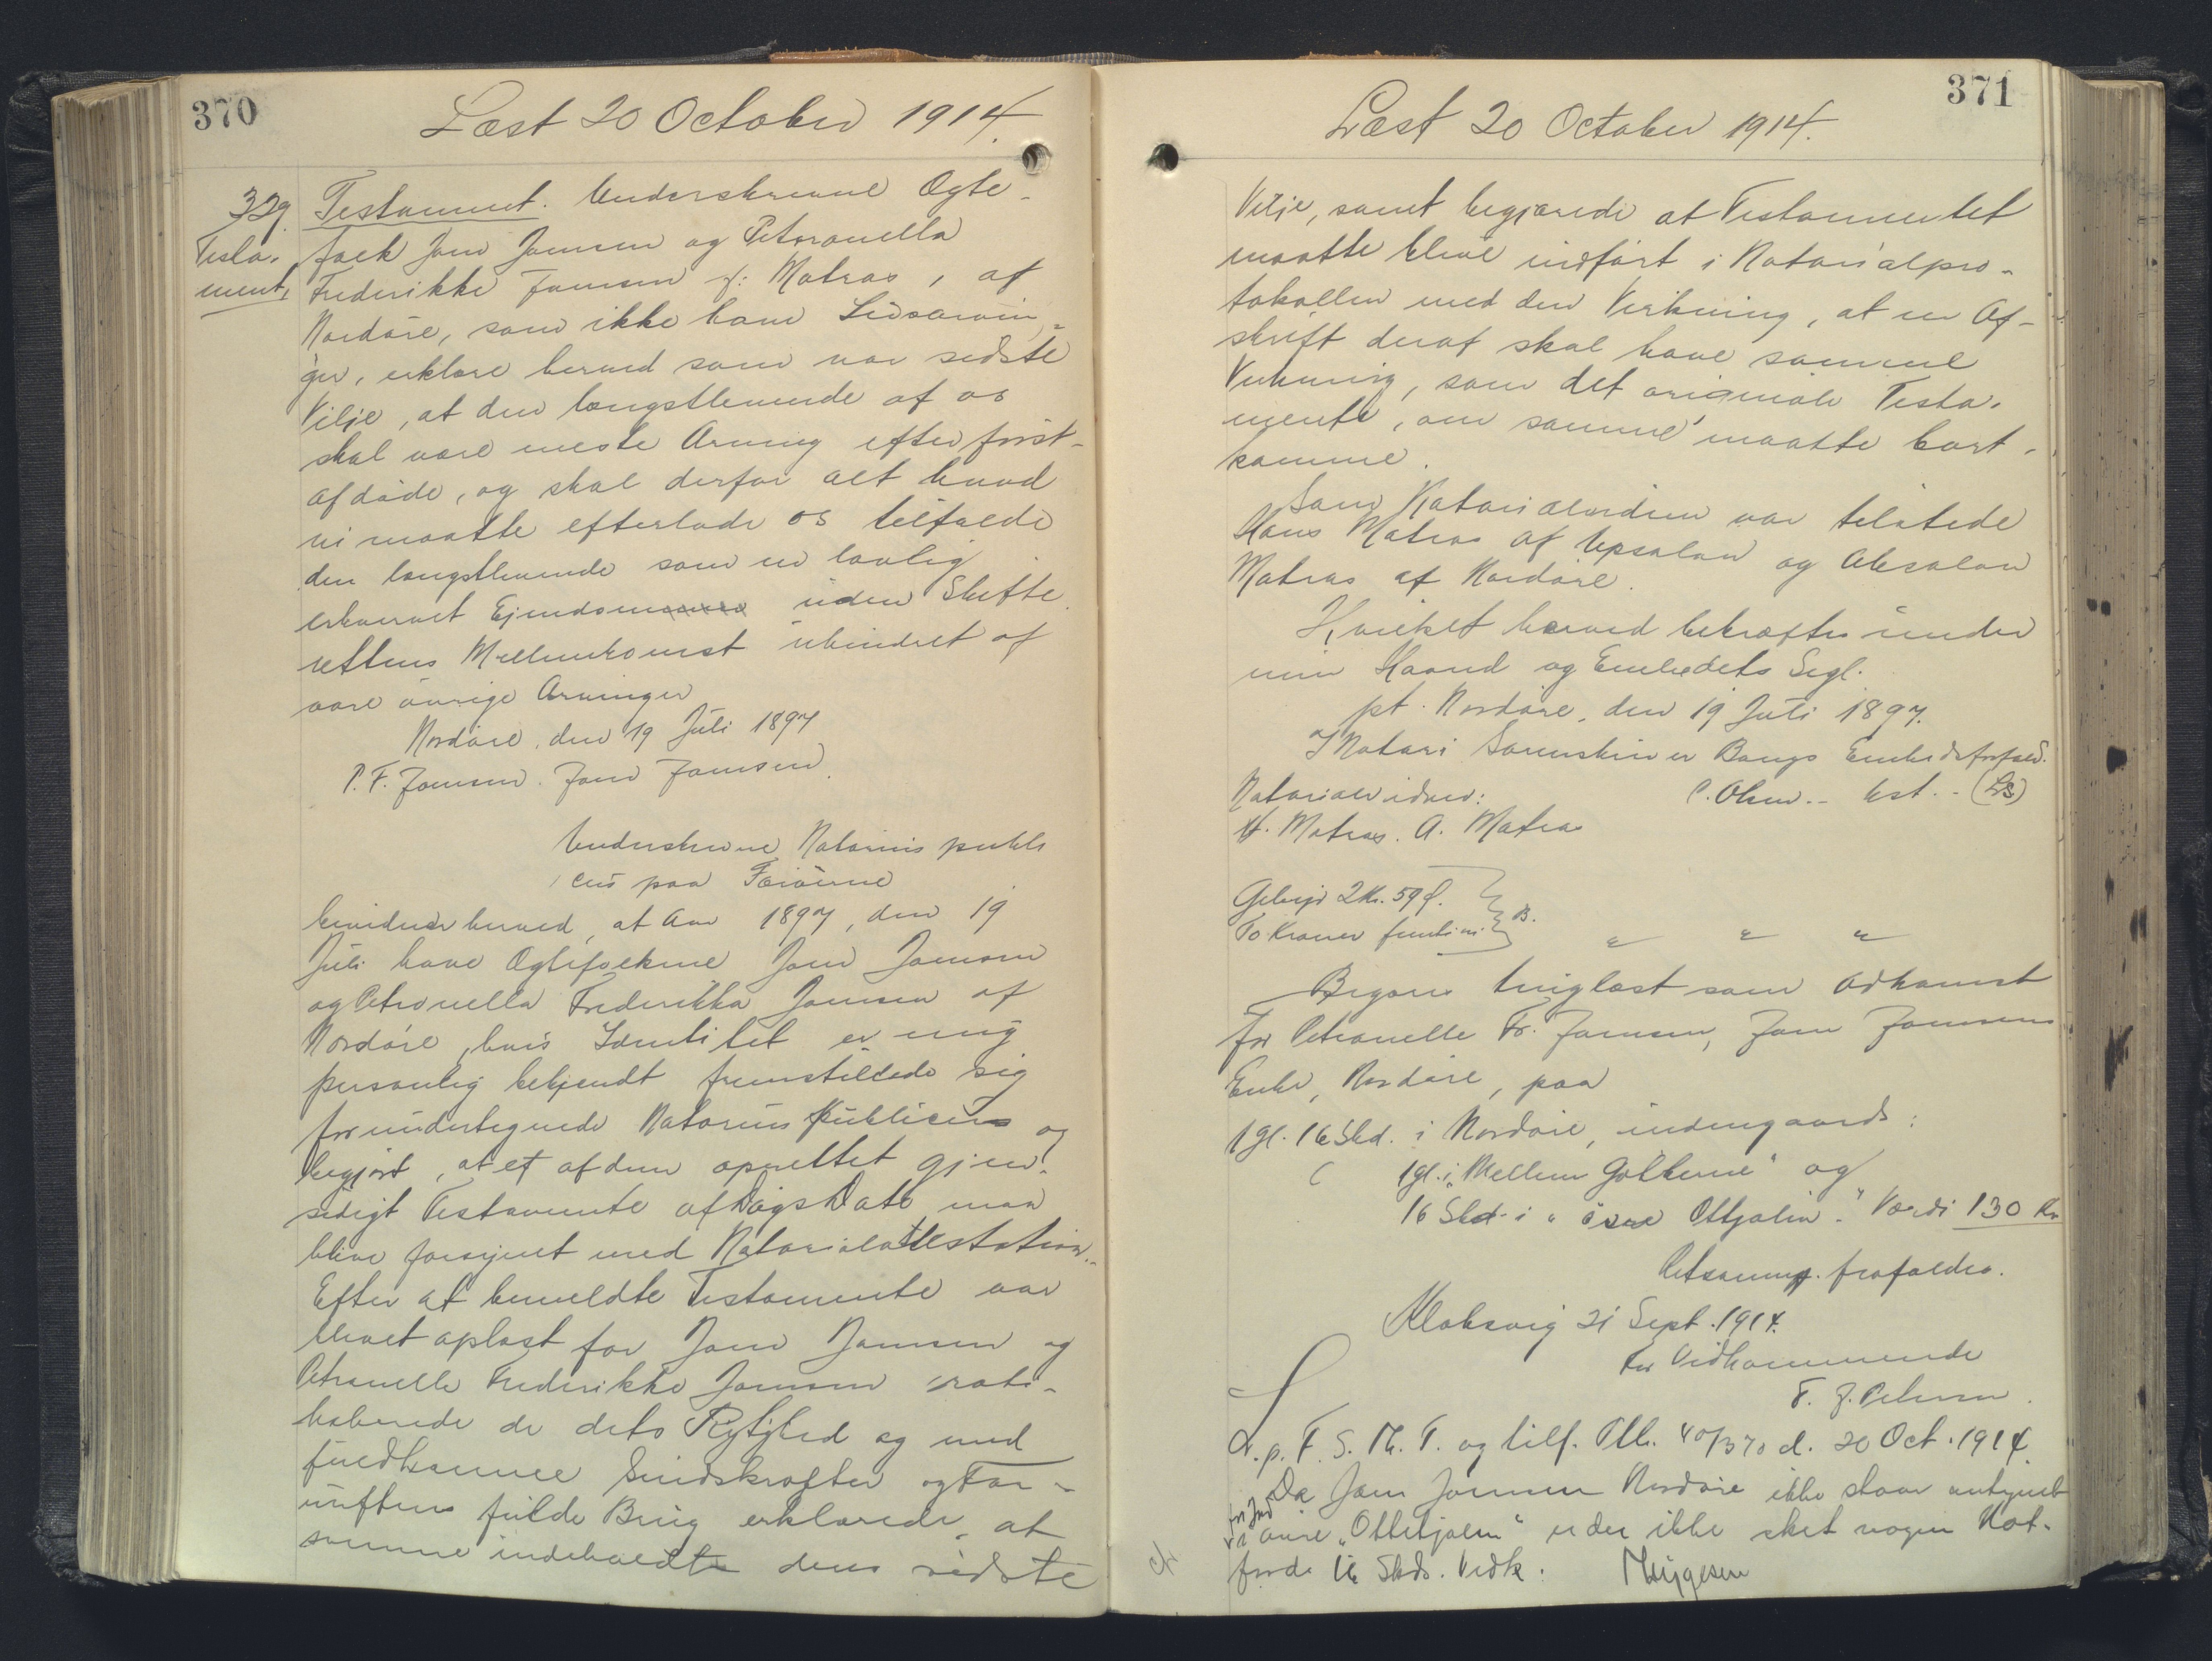 370
Læst 20 October 1914.
329.
Testa-
ment.
Testament. Underskrevne Ægte-
folk Joen Joensen og Petronella
Frederikke Joensen f. Matras, af
Nordöre, som ikke have Livsarvin-
ger, erklære herved som vor sidste
Vilje, at den længstlevende af os
skal være eneste Arving efter först-
afdöde, og skal derfor alt hvad
vi maatte efterlade os tilfalde
den længstlevende som en lovlig
erhvervet Ejendom uden Skifte-
rettens Mellemkomst uhindret af
vore övrige Arvinger
Nordöre, den 19 Juli 1897
P. F. Joensen. Joen Joensen.
Underskrevne Notarius publi
cus paa Færöerne
bevidner herved, at Aar 1897, den 19
Juli have Ægtefolkene Joen Joensen
og Petronella Frederikka Joensen af
Nordöre, hvis Identitet er mig
personlig bekjendt fremstillede sig
for undertegnede Notarius Publicus og
begjært, at et af dem oprettet gjen-
sidigt Testamente af Dags Dato maa
blive forsynet med Notarialattestation.
Efter at bemeldte Testamente var
blevet oplæst for Joen Joensen og
Petronelle Frederikke Joensen, rati-
haberede de dets Rigtighed og med
fuldkomne Sindskræfter og For-
nuftens fulde Brug erklærede, at
samme indeholdte deres sidste
371
Læst 20 October 1914.
Vilje, samt begjærede at Testamentet
maatte blive indfört i Notarialpro-
tokollen med den Virkning, at en Af-
skrift deraf skal have samme
Virkning, som det originale Testa-
mente, om samme maatte bort-
komme.
Som Notarialvidner var tilstede
Hans Matras af Uxedalen og Absalon
Matras af Nordöre.
Hvilket herved bekræftes under
min Haand og Embedets Segl.
pt. Nordöre, den 19 Juli 1897.
I Notari Sorenskriver Bangs Embedsforfald.
Notarialvidner: C. Olsen. - kst. - (LS)
H. Matras. A. Matras
Gebyr 2 Kr. 59 Ø.
To Kroner femti ni. B.
" " "
Begæres tinglæst som Adkomst
for Petronelle Fr. Joensen, Joen Joensens
Enke, Nordöre, paa
1 gl. 16 Skd. i Nordöre, indengaards:
( 1 gl. i "Mellem Götterne" og
16 Skd. i " övre Ottjalin." Værdi 130 Kr
Retsanmg. frafaldes.
Klaksvig 21 Sept. 1914.
For Vedkommende
F. J. Petersen.
L. p. F. S. M. T. og tilf. Ptk. 40/370 d. 20 Oct. 1914.
Da Joen Joensen Nordöre ikke staar antegnet
for Jord
i övre "Ottetjalin" er der ikke sket nogen Not.
for d. 16 Skds. Vedk.